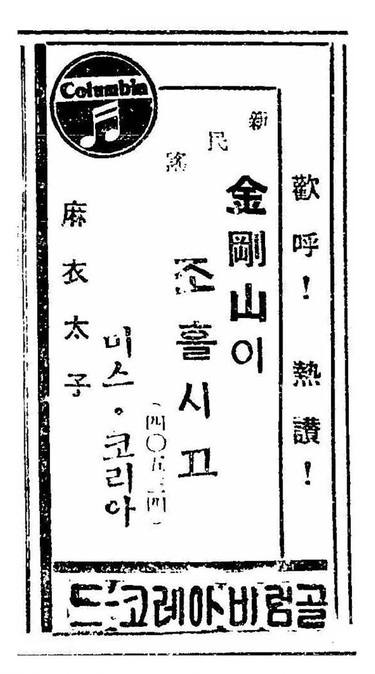 歡呼! 熱讚!
新民謠
金剛山이
조흘시고
(四〇五三四)
미스。코리아
麻衣太子
Columbia
골럼비아레코-드